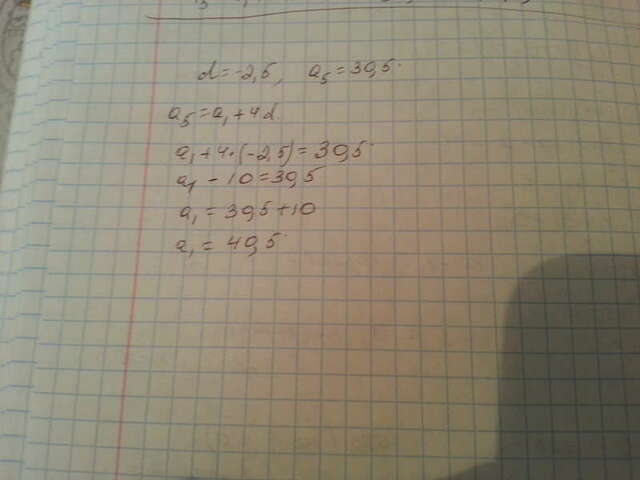 d = -2,5, a₅ = 30,5.
a₅ = a₁ + 4d.
a₁ + 4·(-2,5) = 30,5.
a₁ - 10 = 30,5
a₁ = 30,5 + 10
a₁ = 40,5.